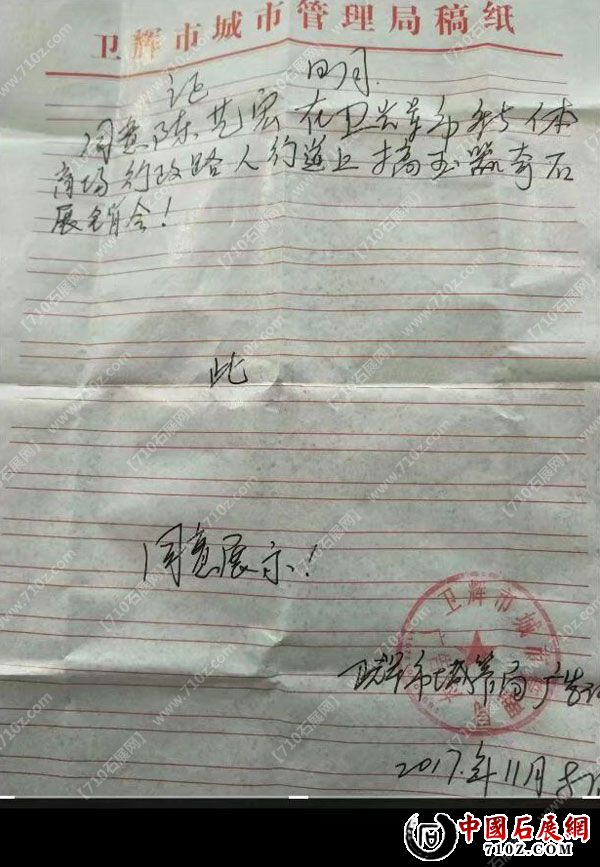 卫辉市城市管理局稿纸
证 明
同意陈艺宏在卫辉市新体
商场行政路人行道上搞玉器奇石
展销会!
此
同意展示!
卫辉市城市
卫辉市城管局广告
2017.年11月
中國石展網
710z.com
【710石展网】
www.710z.com